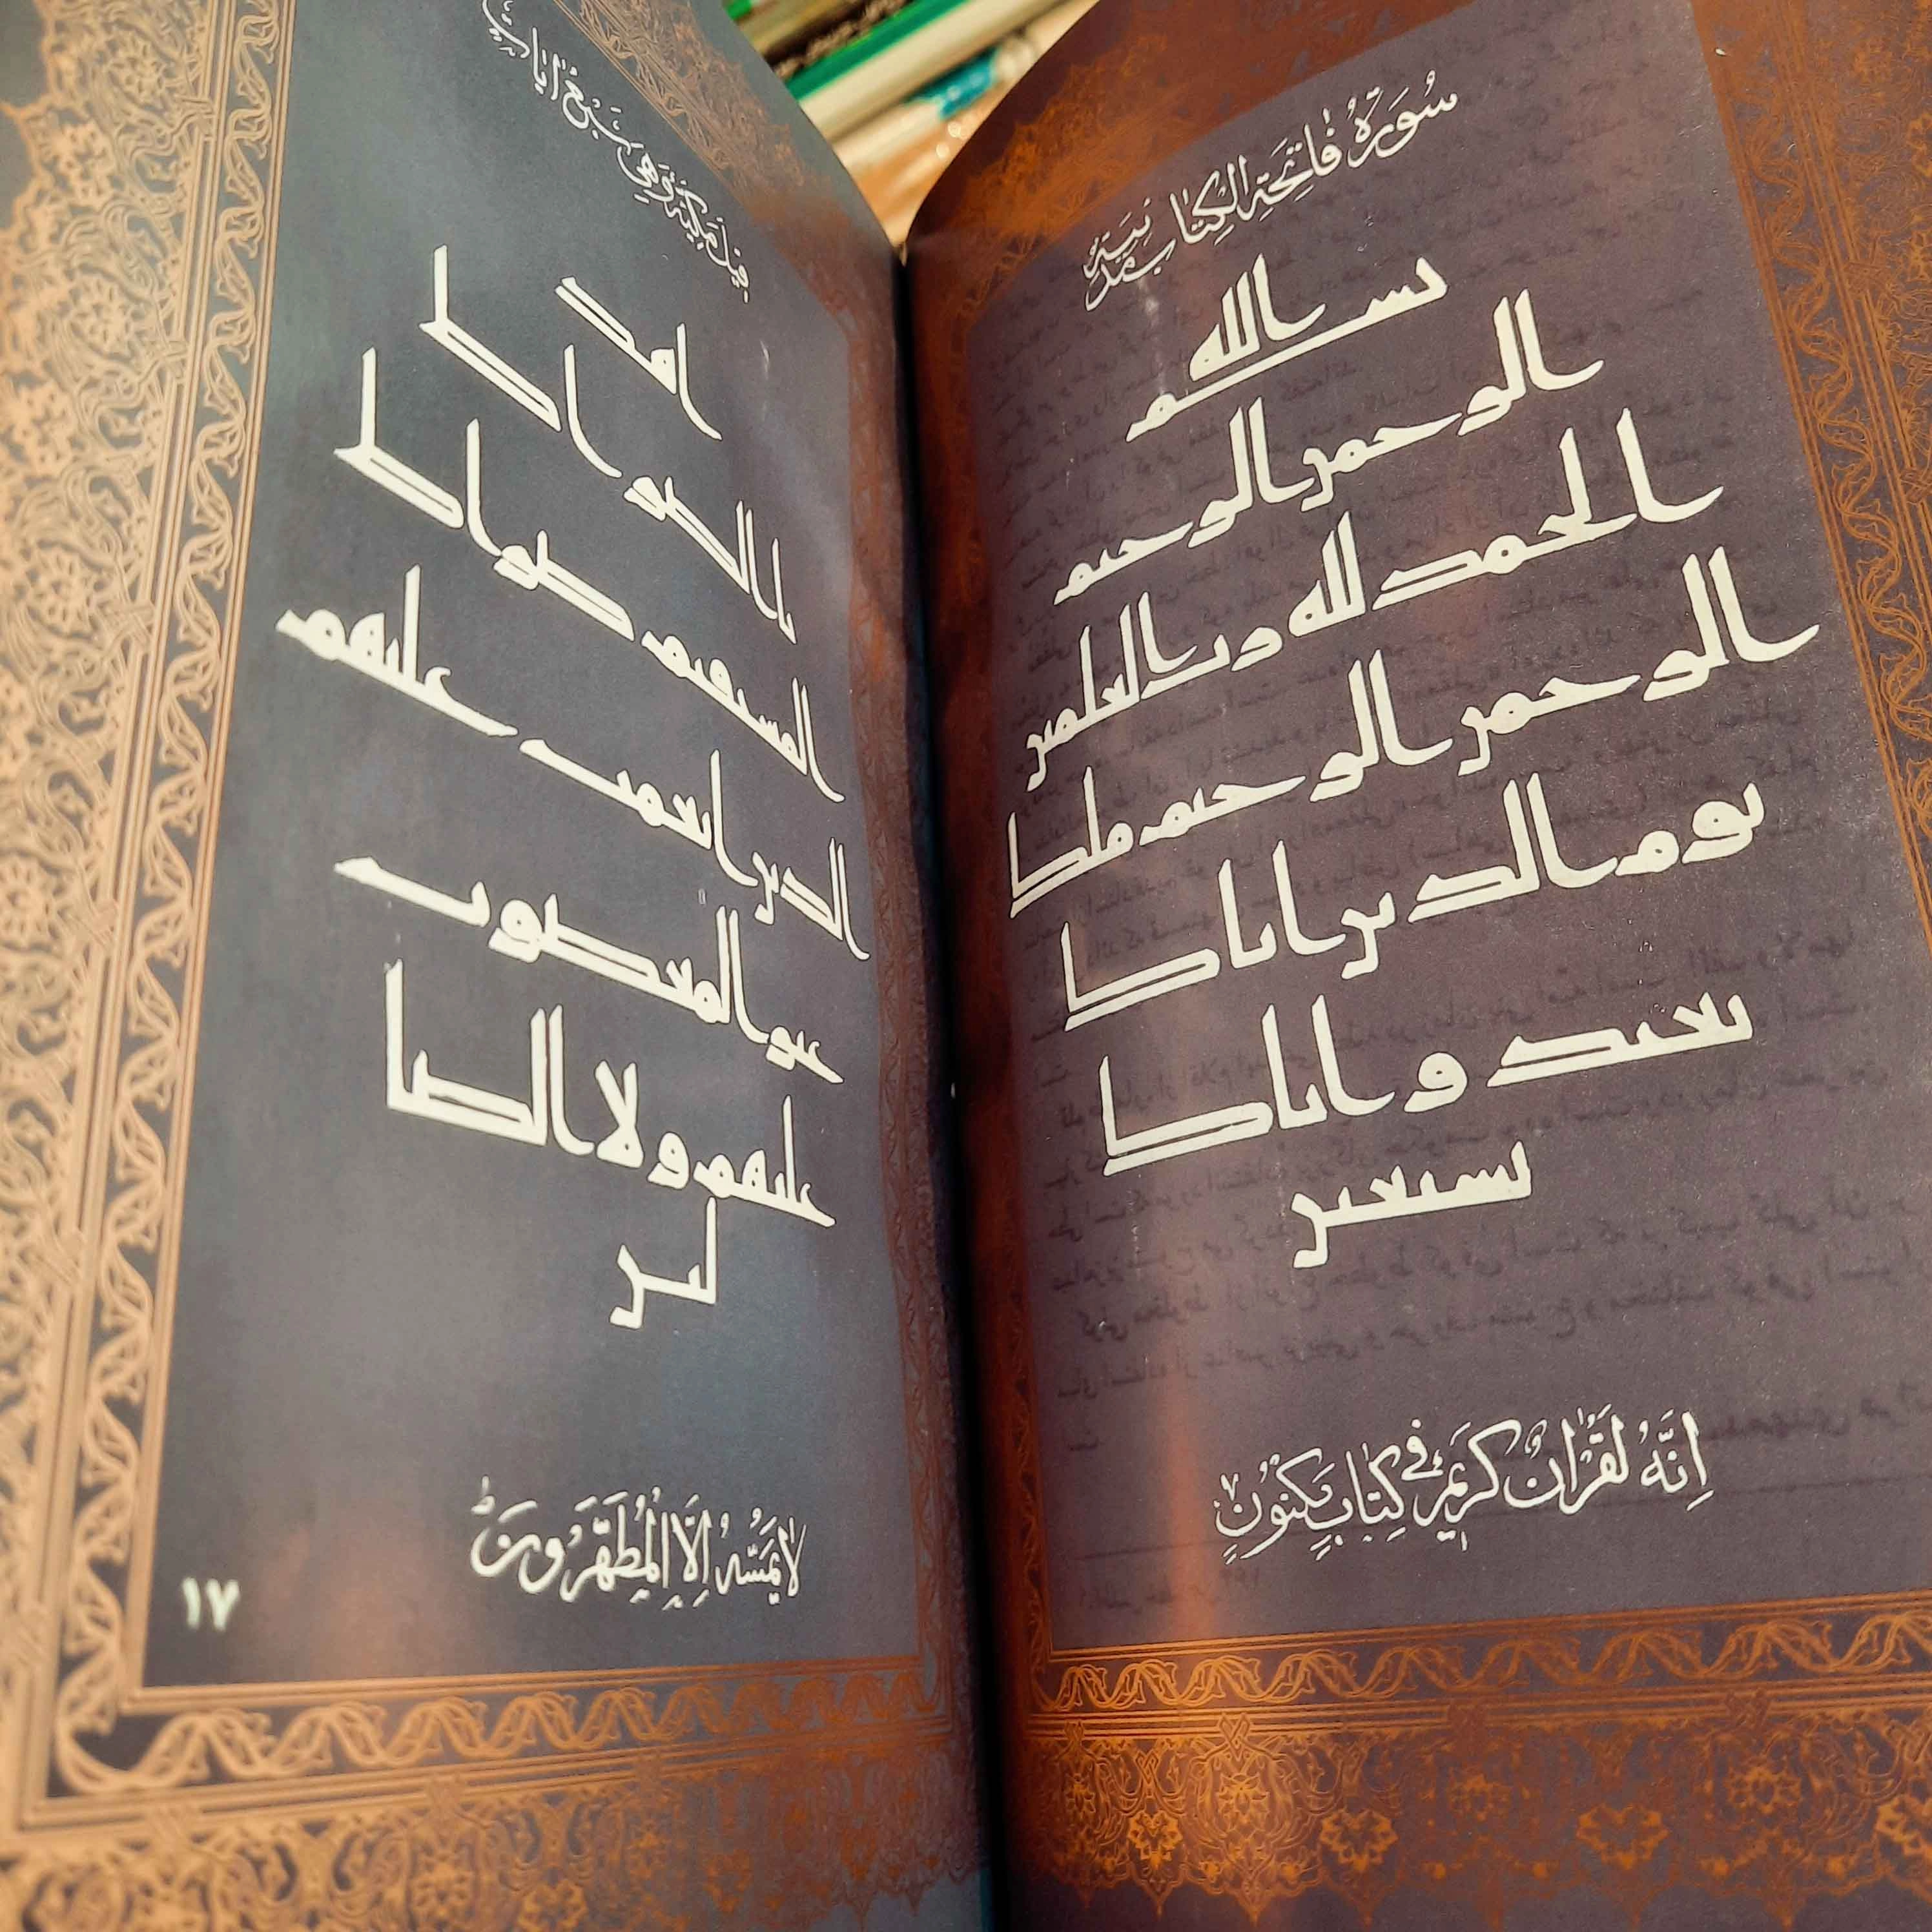 سُورَةُ فَاتِحَةِ الْكِتَابِ مَدَنِيَّة
بسم الله
الرحمن الرحيم
الحمد لله رب العلمين
الرحمن الرحيم ملك
يوم الدين اياك
نعبد و اياك
نستعين
اِنَّهُ لَقُرْاٰنٌ كَرِيْمٌ فِي كِتَابٍ مَكْنُوْنٍ
قيل مَكِيَّة وَهِيَ سَبْعُ اٰيَات
اهد
نا الصراط
المستقيم صراط
الذين انعمت عليهم
غير المغضوب
عليهم و لا الضا
لين
لَا يَمَسُّهُ اِلَّا الْمُطَهَّرُوْنَ ط
١٧